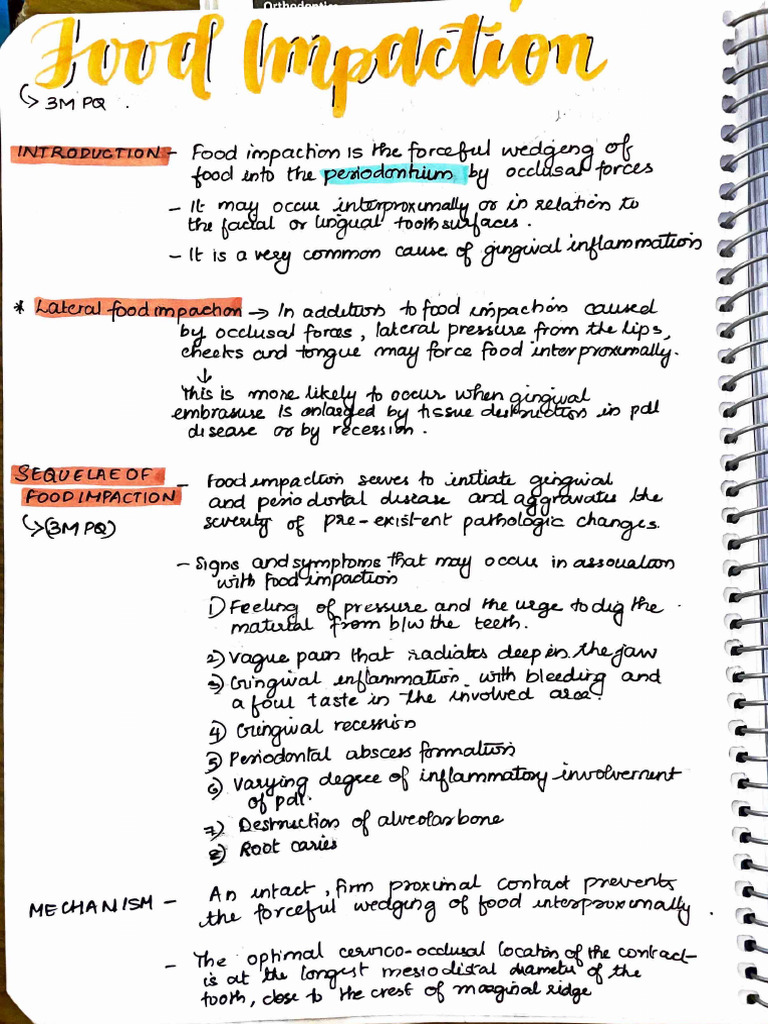 Orthodontics
Food Impaction
↳ 3M PQ .
INTRODUCTION - Food impaction is the forceful wedging of
food into the periodontium by occlusal forces
- It may occur interproximally or in relation to
the facial or lingual tooth surfaces.
- It is a very common cause of gingival inflammation
* Lateral food impaction → In addition to food impaction caused
by occlusal forces, lateral pressure from the lips,
cheeks and tongue may force food interproximally.
↓
This is more likely to occur when gingival
embrasure is enlarged by tissue destruction in pdl
disease or by recession.
SEQUELAE OF
FOOD IMPACTION - Food impaction serves to initiate gingival
and periodontal disease and aggravates the
↳ (3M PQ) severity of pre-existent pathologic changes.
- Signs and symptoms that may occur in association
with food impaction
1) Feeling of pressure and the urge to dig the
material from b/w the teeth.
2) Vague pain that radiates deep in the jaw
3) Gingival inflammation with bleeding and
a foul taste in the involved area.
4) Gingival recession
5) Periodontal abscess formation
6) Varying degree of inflammatory involvement
of pdl.
7) Destruction of alveolar bone
8) Root caries
MECHANISM - An intact, firm proximal contact prevents
the forceful wedging of food interproximally.
- The optimal cervico-occlusal location of the contact
is at the longest mesiodistal diameter of the
tooth, close to the crest of marginal ridge